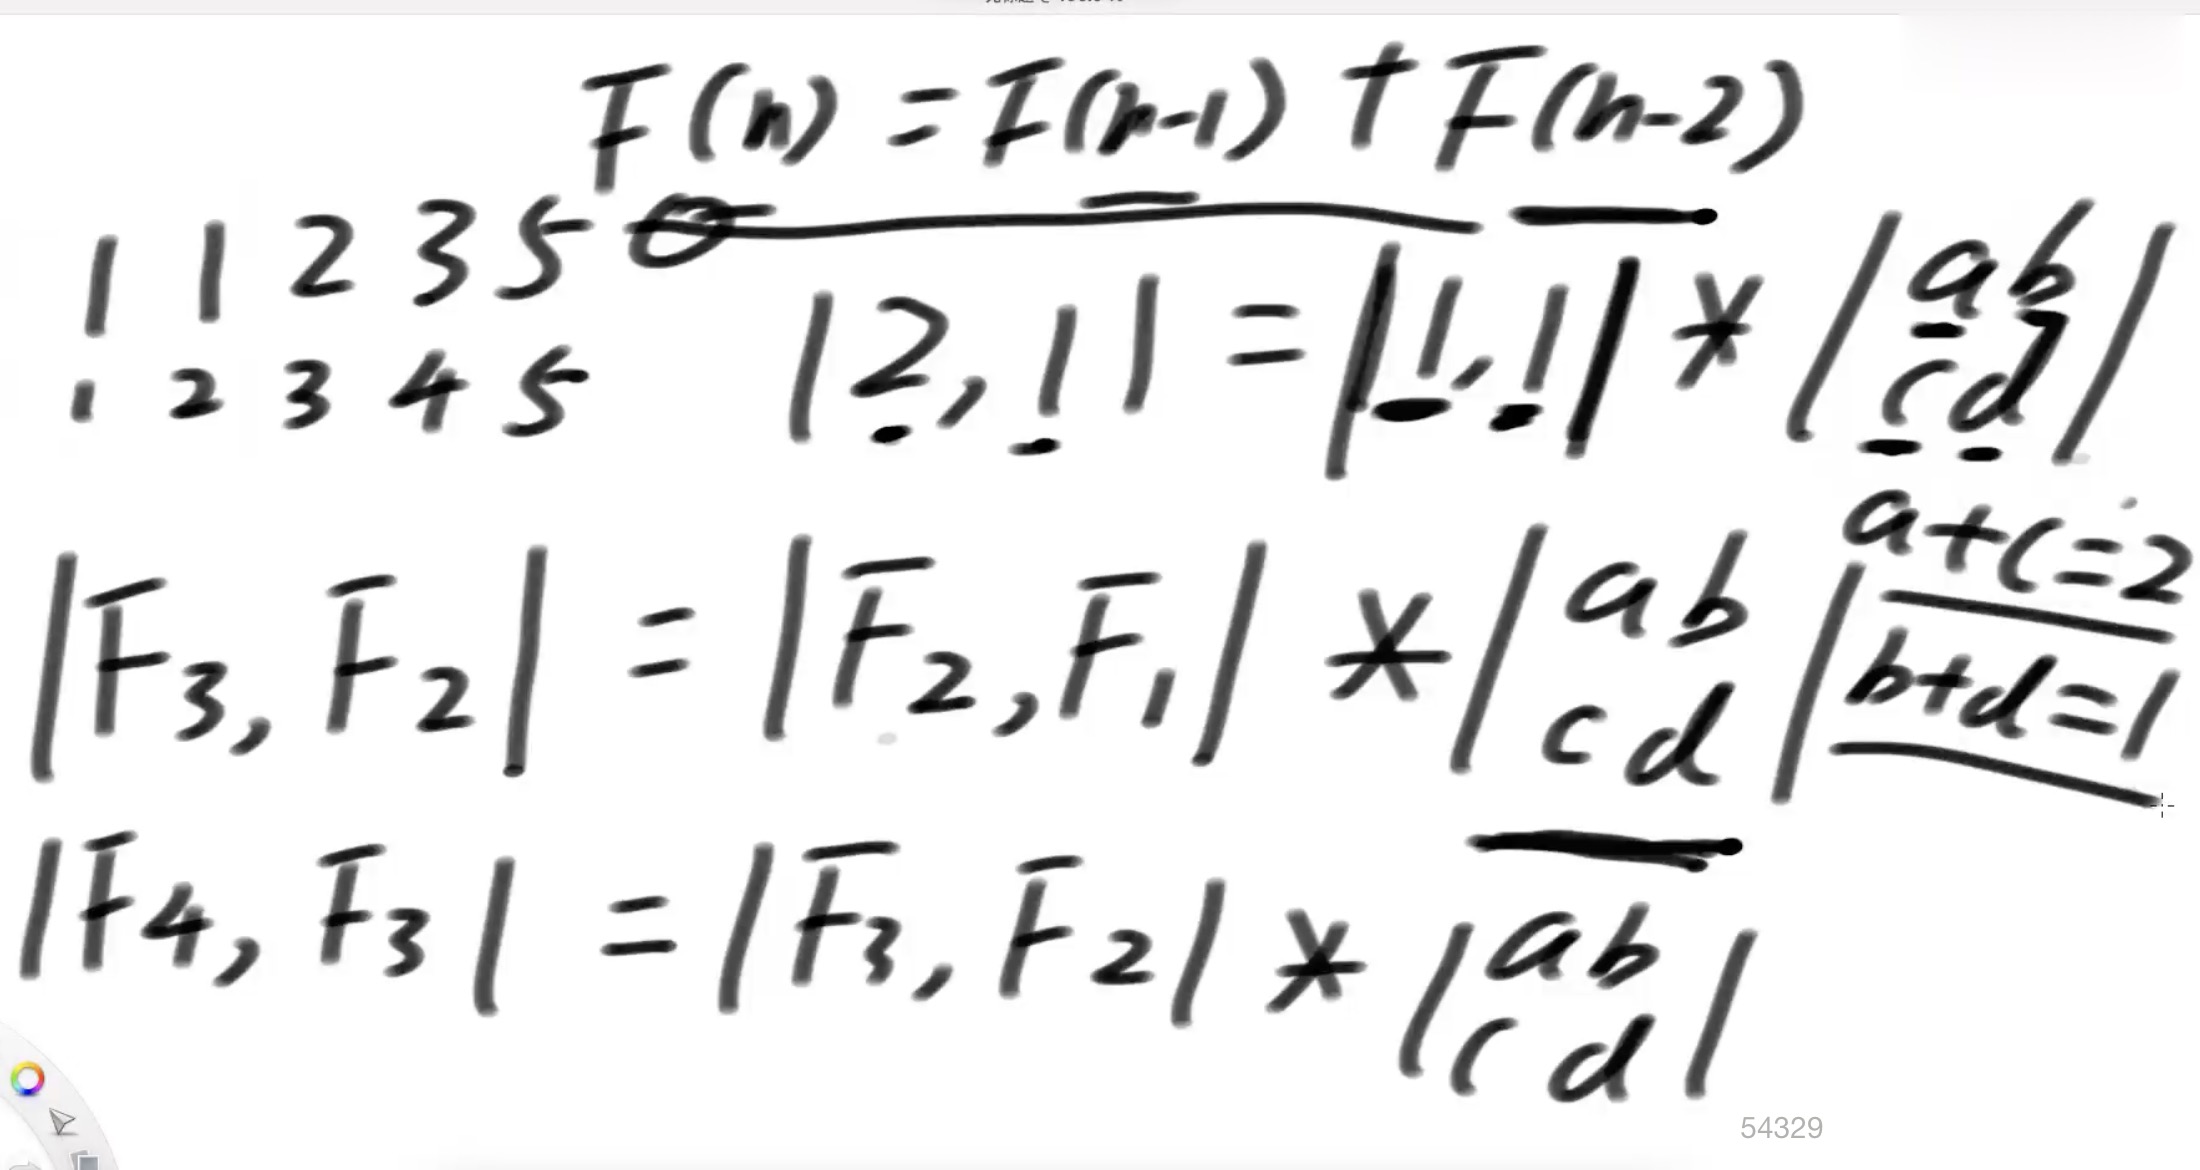 F(n) = F(n-1) + F(n-2)
1 1 2 3 5
1 2 3 4 5
|2,1| = |1,1| * |a b
c d|
a+c=2
b+d=1
|F3, F2| = |F2, F1| * |a b
c d|
|F4, F3| = |F3, F2| * |a b
c d|
54329